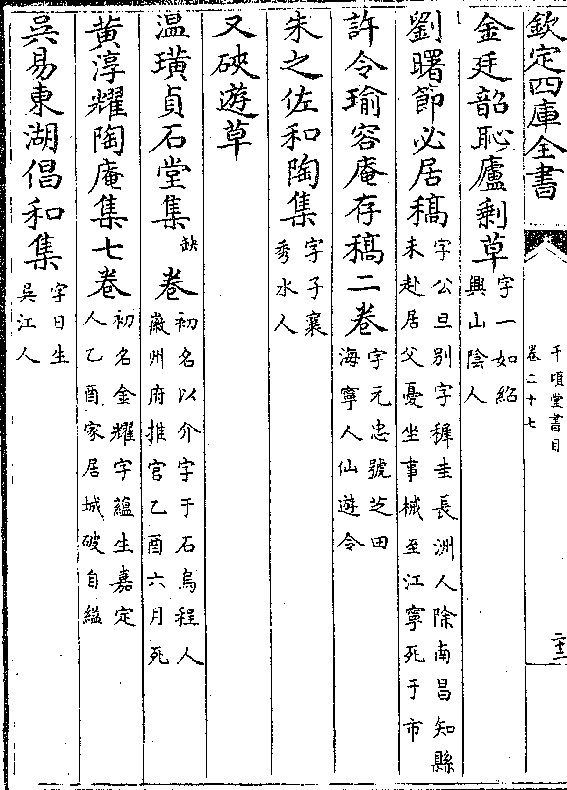 欽定四庫全書
千頃堂書目
卷二十七
二十三
金廷韶恥廬剩草字一如紹
興山陰人
劉曙節必居稿字公旦别字穉圭長洲人除南昌知縣
未赴居父憂坐事械至江寧死于市
許令瑜容庵存稿二卷字元忠號芝田
海寧人仙遊令
朱之佐和陶集字子襄
秀水人
又硤遊草
温璜貞石堂集缺卷初名以介字于石烏程人
徽州府推官乙酉六月死
黄淳耀陶庵集七卷初名金耀字藴生嘉定
人乙酉家居城破自縊
吳易東湖倡和集字日生
吳江人